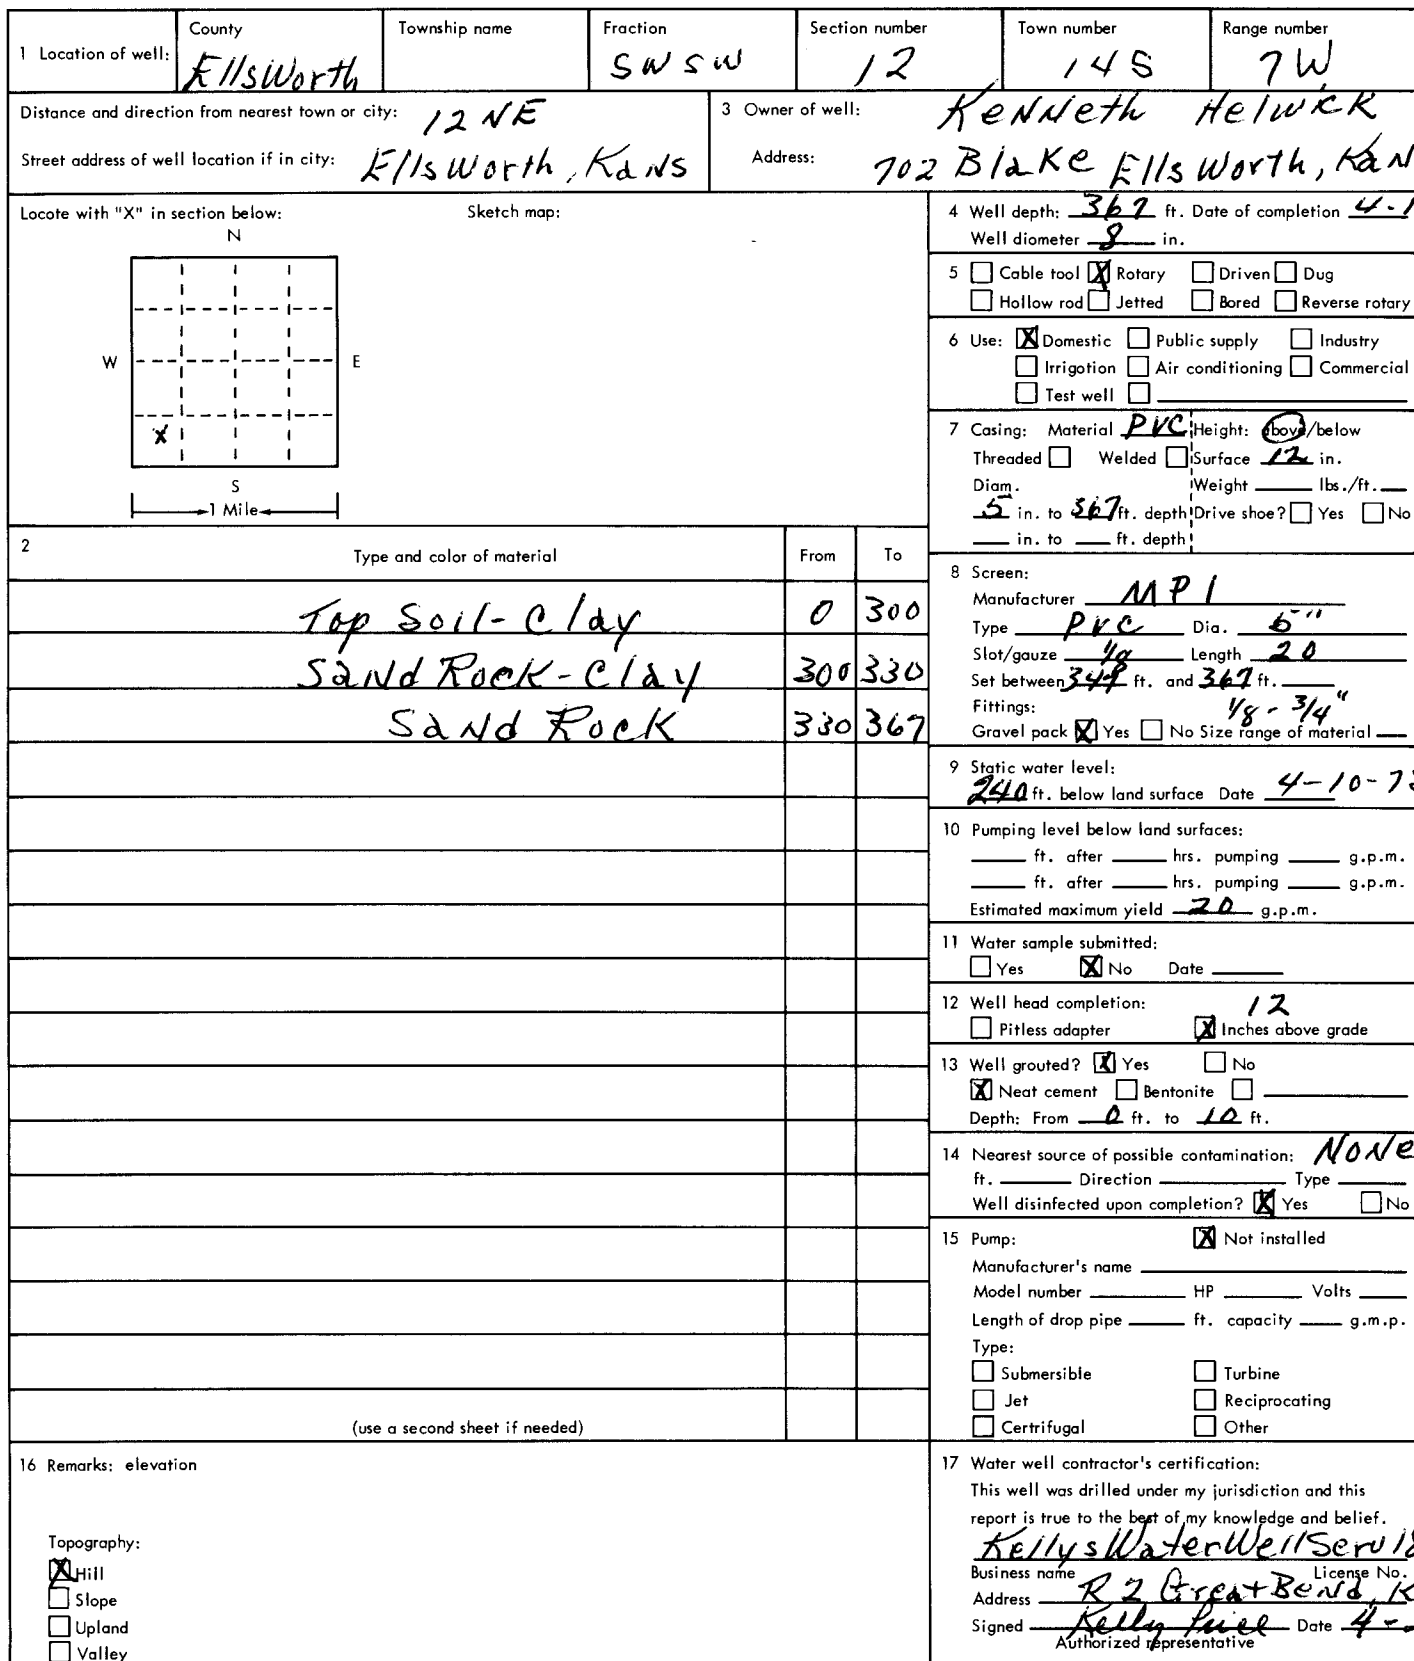 1 Location of well: County Township name Fraction Section number Town number Range number
EllsWorth SW SW 12 14S 7W
Distance and direction from nearest town or city: 12 NE
Street address of well location if in city: EllsWorth, Kans
3 Owner of well: Kenneth Helwick
Address: 702 Blake EllsWorth, Kan
Locote with "X" in section below: Sketch map:
N
W E
X
S
1 Mile
2 Type and color of material From To
Top Soil-Clay 0 300
Sand Rock-Clay 300 330
Sand Rock 330 367
(use a second sheet if needed)
4 Well depth: 367 ft. Date of completion
Well diometer 8 in.
5 Cable tool X Rotary Driven Dug
Hollow rod Jetted Bored Reverse rotary
6 Use: X Domestic Public supply Industry
Irrigotion Air conditioning Commercial
Test well
7 Casing: Material PVC Height: above/below
Threaded Welded Surface 12 in.
Diam. Weight lbs./ft.
5 in. to 367 ft. depth Drive shoe? Yes No
in. to ft. depth
8 Screen:
Manufacturer MPI
Type PVC Dia. 5"
Slot/gauze Length 20
Set between 347 ft. and 367 ft.
Fittings: 1/8 - 3/4"
Gravel pack X Yes No Size range of material
9 Static water level:
240 ft. below land surface Date 4-10-7
10 Pumping level below land surfaces:
ft. after hrs. pumping g.p.m.
ft. after hrs. pumping g.p.m.
Estimated maximum yield 20 g.p.m.
11 Water sample submitted:
Yes X No Date
12 Well head completion: 12
Pitless adapter X Inches above grade
13 Well grouted? X Yes No
X Neat cement Bentonite
Depth: From 0 ft. to 10 ft.
14 Nearest source of possible contamination: NONE
ft. Direction Type
Well disinfected upon completion? X Yes No
15 Pump: X Not installed
Manufacturer's name
Model number HP Volts
Length of drop pipe ft. capacity g.m.p.
Type:
Submersible Turbine
Jet Reciprocating
Certrifugal Other
16 Remarks: elevation
Topography:
X Hill
Slope
Upland
Valley
17 Water well contractor's certification:
This well was drilled under my jurisdiction and this
report is true to the best of my knowledge and belief.
Kellys Water Well
Business name License No.
Address R 2 Great Bend, K
Signed Kelly Price Date 4-
Authorized representative